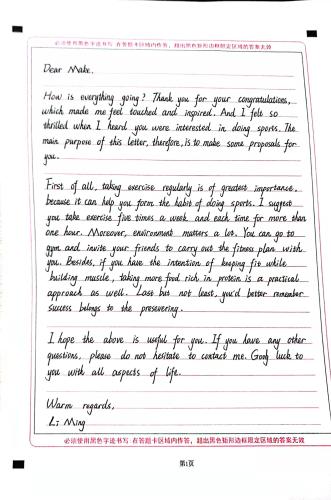 必须使用黑色字迹书写 在答题卡区域内作答，超出黑色矩形边框限定区域的答案无效
Dear Make.
How is everything going? Thank you for your congratulations,
which made me feel touched and inspired. And I felt so
thrilled when I heard you were interested in doing sports. The
main purpose of this letter, therefore, is to make some proposals for
you.
First of all, taking exercise regularly is of greatest importance,
because it can help you form the habit of doing sports. I suggest
you take exercise five times a week and each time for more than
one hour. Moreover, environment matters a lot. You can go to
gym and invite your friends to carry out the fitness plan with
you. Besides, if you have the intention of keeping fit while
building muscle, taking more food rich in protein is a practical
approach as well. Last but not least, you'd better remember
success belongs to the preserving.
I hope the above is useful for you. If you have any other
questions, please do not hesitate to contact me. Good luck to
you with all aspects of life.
Warm regards,
Li Ming
必须使用黑色字迹书写 在答题卡区域内作答，超出黑色矩形边框限定区域的答案无效
第1页